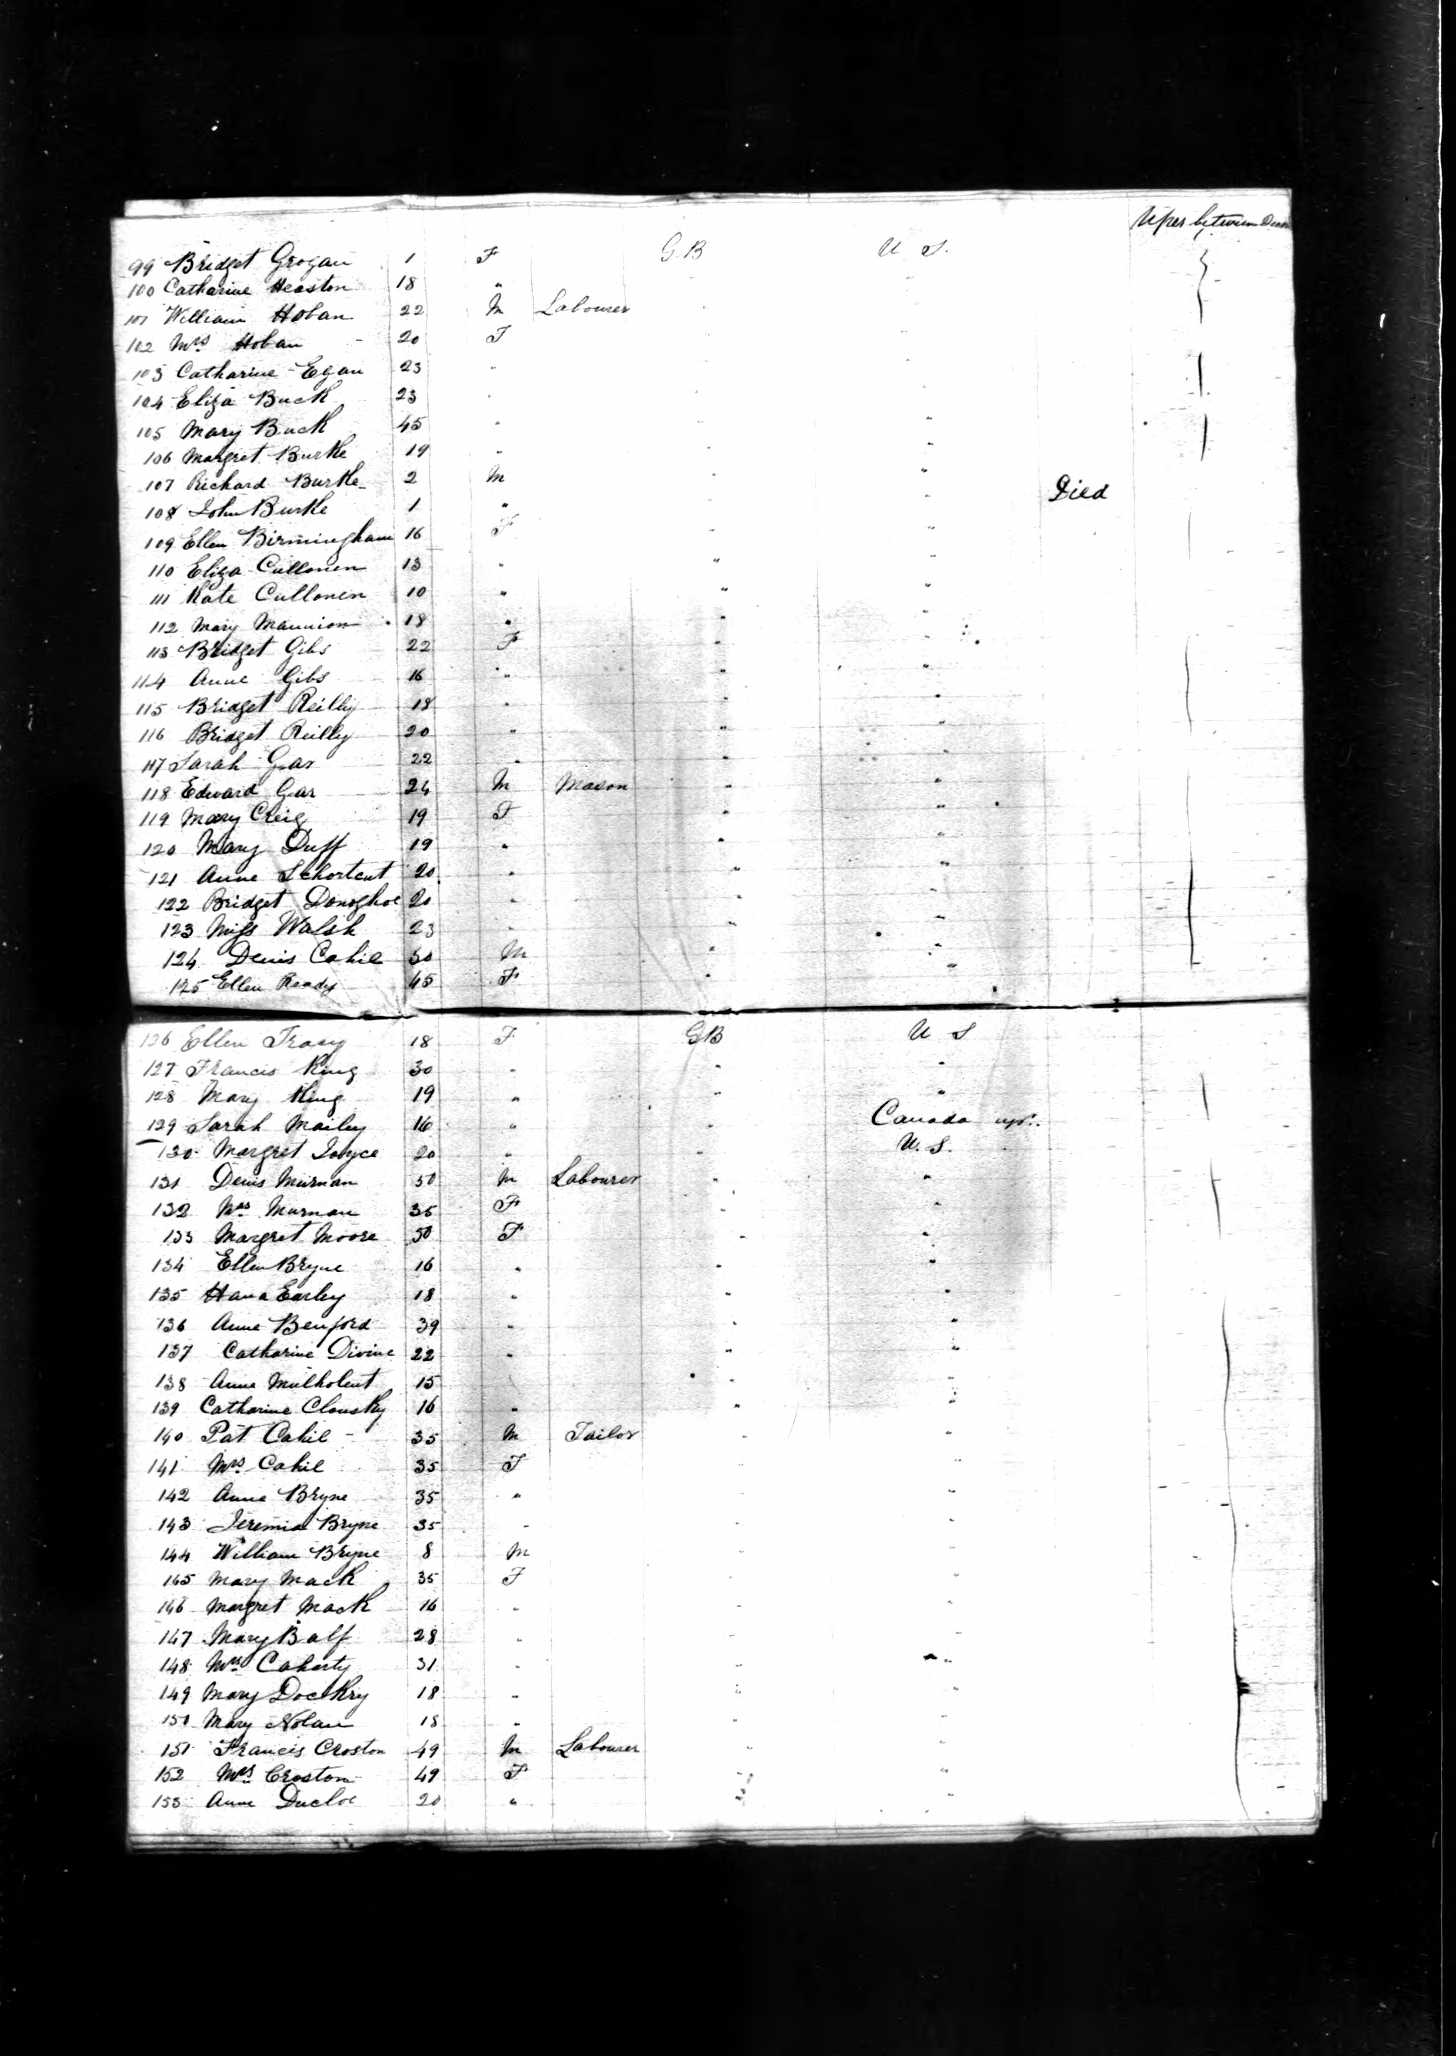 Uper between Decks
99 Bridget Grogan 1 F G.B U S.
100 Catharine Heaston 18 "
101 William Hoban 22 M Labourer
102 Mrs Hoban 20 F
103 Catharine Egan 23 "
104 Eliza Buck 23 "
105 Mary Buck 45 " "
106 Margret Burke 19 " "
107 Richard Burke 2 M " Died
108 John Burke 1 " "
109 Ellen Birmingham 16 F " "
110 Eliza Cullonen 13 " " "
111 Kate Cullonen 10 " " "
112 Mary Mannion 18 " " "
113 Bridget Gibs 22 F " "
114 Anne Gibs 16 " " "
115 Bridget Reilly 18 " " "
116 Bridget Reilly 20 " " "
117 Sarah Gar 22 " " "
118 Edward Gar 24 M Mason " "
119 Mary Creig 19 F " "
120 Mary Duff 19 " " "
121 Anne Schortcut 20 " " "
122 Bridget Donoghoe 20 " " "
123 Miss Walsh 23 " " "
124 Denis Cahil 30 M " "
125 Ellen Ready 45 F " "
126 Ellen Tracy 18 F GB U S
127 Francis King 30 " " "
128 Mary King 19 " " "
129 Sarah Mailey 16 " " Canada
130 Margret Joyce 20 " " U.S.
131 Denis Murnan 50 M Labourer " "
132 Mrs Murnan 35 F " "
133 Margret Moore 50 F " "
134 Ellen Bryne 16 " " "
135 Hana Earley 18 " " "
136 Anne Benford 39 " " "
137 Catharine Divine 22 " " "
138 Anne Mulholent 15 " " "
139 Catharine Clousky 16 " " "
140 Pat Cahil 35 M Tailor " "
141 Mrs Cahil 35 F " "
142 Anne Bryne 35 " " "
143 Jeremia Bryne 35 " " "
144 William Bryne 8 M " "
145 Mary Mack 35 F " "
146 Margret Mack 16 " " "
147 Mary Balf 28 " " "
148 Mrs Caherty 31 " " "
149 Mary Dockry 18 " " "
150 Mary Nolan 18 " " "
151 Francis Croston 49 M Labourer " "
152 Mrs Croston 49 F " "
153 Anne Ducloe 20 " " "